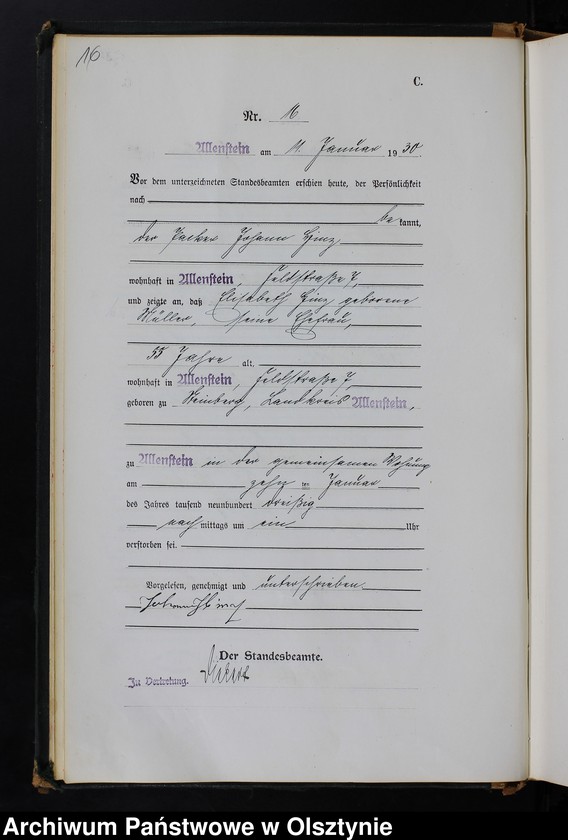 16
C.
Nr. 16
Allenstein am 11. Januar 1930.
Vor dem unterzeichneten Standesbeamten erschien heute, der Persönlichkeit
nach
bekannt,
der Packer Johann Hinz
wohnhaft in Allenstein, Feldstraße 7,
und zeigte an, daß Elisabeth Hinz geborene
Müller, seine Ehefrau,
55 Jahre alt,
wohnhaft in Allenstein, Feldstraße 7,
geboren zu Landkreis Allenstein,
zu Allenstein in der gemeinsamen Wohnung
am zehn ten Januar
des Jahres tausend neunhundert dreißig
nach mittags um ein Uhr
verstorben sei.
Vorgelesen, genehmigt und unterschrieben.
Johann Hinz
Der Standesbeamte.
In Vertretung.
Archiwum Państwowe w Olsztynie